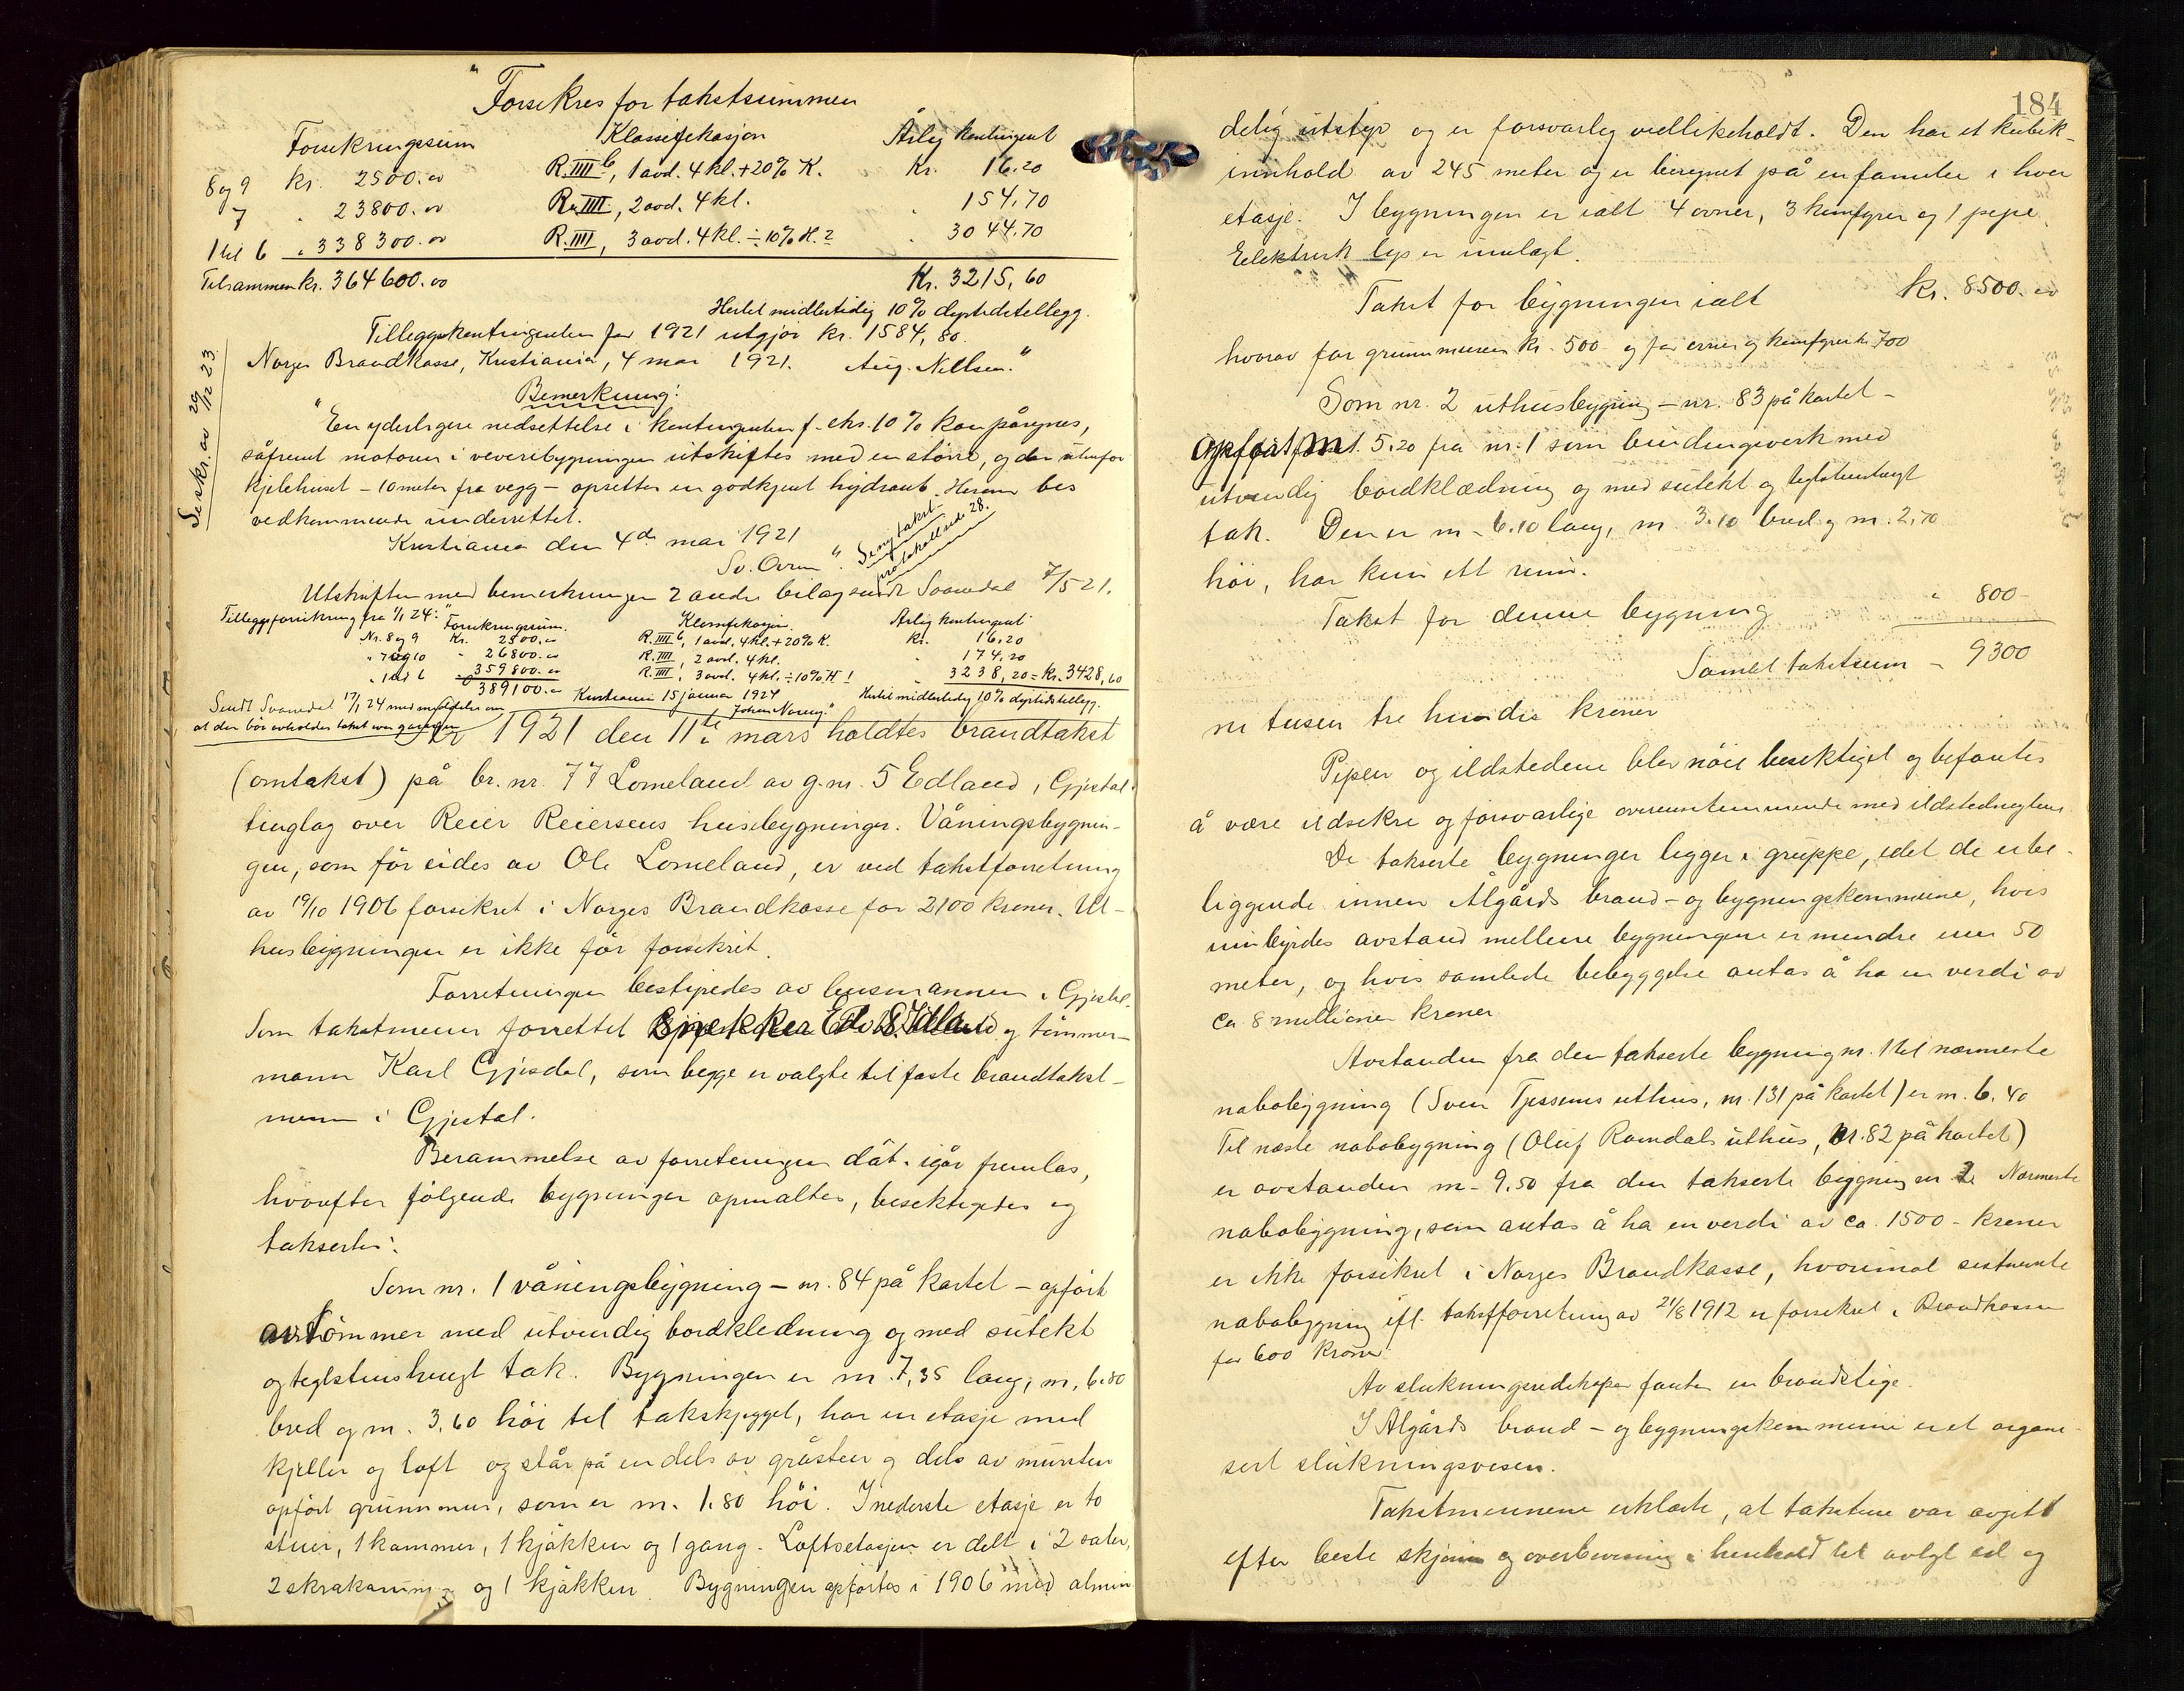 "Forsikres for takstsummen
Forsikringssum Klassifikasjon Årlig kontingent
8 og 9 kr. 2500.00 R.IIII b, 1 avd. 4 kl. + 20% K. Kr. 16.20
7 " 23800.00 R. IIII, 2 avd. 4 kl. " 154,70
1 til 6 " 338300.00 R. IIII, 3 avd. 4 kl. ÷ 10% H. 2 " 3044.70
Tilsammen kr. 364600.00 Kr. 3215,60
Hertil midlertidig 10% dyrtidstillegg.
Tilleggskontingenten for 1921 utgjør kr. 1584,80.
Norges Brandkasse, Kristiania, 4 mai 1921. Aug. Nilsen."
Se skr. av 29/12 23
Bemerkning:
"En yderligere nedsettelse i kontingenten f. eks. 10% kan påregnes,
såfremt motoren i veveribygningen utskiftes med en større, og der utenfor
kjelehuset – 10 meter fra vegg – opsettes en godkjent hydrant. Herom bes
vedkommende underrettet.
Kristiania den 4de mai 1921
Sv. Oven".
Se ny takst
protokollside 28.
Utskriften med bemerkninger 2 andre bilag sendt Svandal 7/5 21.
Tilleggsforsikring fra 1/1 24: "Forsikringssum. Klassifikasjon. Årlig kontingent
Nr. 8 og 9 Kr. 2500.00 R. IIII b, 1 avd. 4 kl. + 20% K. Kr. 16.20
" 7 og 10 " 26800.00 R. IIII, 2 avd. 4 kl. " 174,20
" 1 til 6 359800.00 R. IIII, 3 avd. 4 kl. ÷ 10% H! " 3238,20 = Kr. 3428,60
389100.00 Kristiania 15 januar 1924 Hertil midlertidig 10% dyrtidstillegg.
Sendt Svandal 17/1 24 med meldelse om
at der bør avholdes takst over garasjen
År 1921 den 11te mars holdtes brandtakst
(omtakst) på br. nr. 77 Lomeland av g. nr. 5 Edland, Gjestal
tinglag over Reier Reiersens husbygninger. Våningsbygnin-
gen, som før eides av Ole Lomeland, er ved takstforretning
av 19/10 1906 forsikret i Norges Brandkasse for 2100 kroner. Ut-
husbygningen er ikke før forsikret.
Forretningen bestyredes av lensmannen i Gjestal.
Som takstmenn forrettet Snekker Edv. S. Idland og tømmer-
mann Karl Gjesdal, som begge er valgte til faste brandtakst-
menn i Gjestal.
Berammelse av forretningen dat. igår fremlas,
hvorefter følgende bygninger opmaltes, besiktigetes og
takserte:
Som nr. 1 våningsbygning – nr. 84 på kartet – opført
av tømmer med utvendig bordkledning og med sutekt
og teglstenshengt tak. Bygningen er m. 7,35 lang, m. 6.80
bred og m. 3,60 høi til takskjegget, har en etasje med
kjeller og loft og står på en dels av gråsten og dels av mursten
opført grunnmur, som er m. 1.80 høi. I nederste etasje er to
stuer, 1 kammer, 1 kjøkken og 1 gang. Loftsetasjen er delt i 2 saler,
2 skrakammer og 1 kjøkken. Bygningen opførtes i 1906 med almin-
184
delig utstyr og er forsvarlig vedlikeholdt. Den har et kubik-
innhold av 245 meter og er beregnet på en familie i hver
etasje. I bygningen er ialt 4 ovner, 3 kimfyrer og 1 pipe.
Elektrisk lys er innlagt.
Takst for bygningen ialt kr. 8500.00
hvorav for grunnmuren kr. 500 og for ovner og kimfyrer kr. 700
Som nr. 2 uthusbygning – nr. 83 på kartet –
opført m. 5.20 fra nr. 1 som bindingsverk med
utvendig bordklædning og med sutekt og teglstenshengt
tak. Den er m. 6.10 lang, m. 3.10 bred og m. 2,70
høi, har kun ett rum.
Takst for denne bygning " 800
Samlet takstsum – 9300
ni tusen tre hundre kroner
Pipen og ildstedene blev nøie besiktiget og befantes
å være ildsikre og forsvarlige overensstemmende med ildstedreglene
De takserte bygninger ligger i gruppe, idet de er be-
liggende innen Ålgårds brand- og bygningskommune, hvis
innbyrdes avstand mellem bygningene er mindre enn 50
meter, og hvis samlede bebyggelse antas å ha en verdi av
ca 8 millioner kroner.
Avstanden fra den takserte bygning nr. 1 til nærmeste
nabobygning (Sven Tjessens uthus, nr. 131 på kartet) er m. 6.40
Til næste nabobygning (Oluf Ramdals uthus, nr. 82 på kartet)
er avstanden m. 9.50 fra den takserte bygning nr. 2. Nærmeste
nabobygning, som antas å ha en verdi av ca. 1500 – kroner
er ikke forsikret i Norges Brandkasse, hvorimot sistnevnte
nabobygning ifl. takstforretning av 21/8 1912 er forsikret i Brandkassen
for 600 kroner.
Av slukningsredskaper fantes en brandstige.
I Ålgårds brand- og bygningskommune er et organi-
sert slukningsvesen.
Takstmennene erklærte, at takstene var avgitt
efter beste skjønn og overbevisning i henhold til avlagt ed og